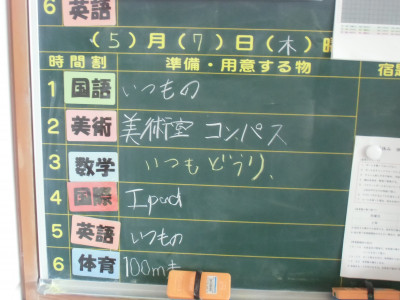 6 英語
(5)月(7)日(木)時
時間割 準備・用意する物 宿題
1 国語 いつもの
2 美術 美術室 コンパス
3 数学 いつもどうり、
4 国際 Ipad
5 英語 いつもの
6 体育 100m走